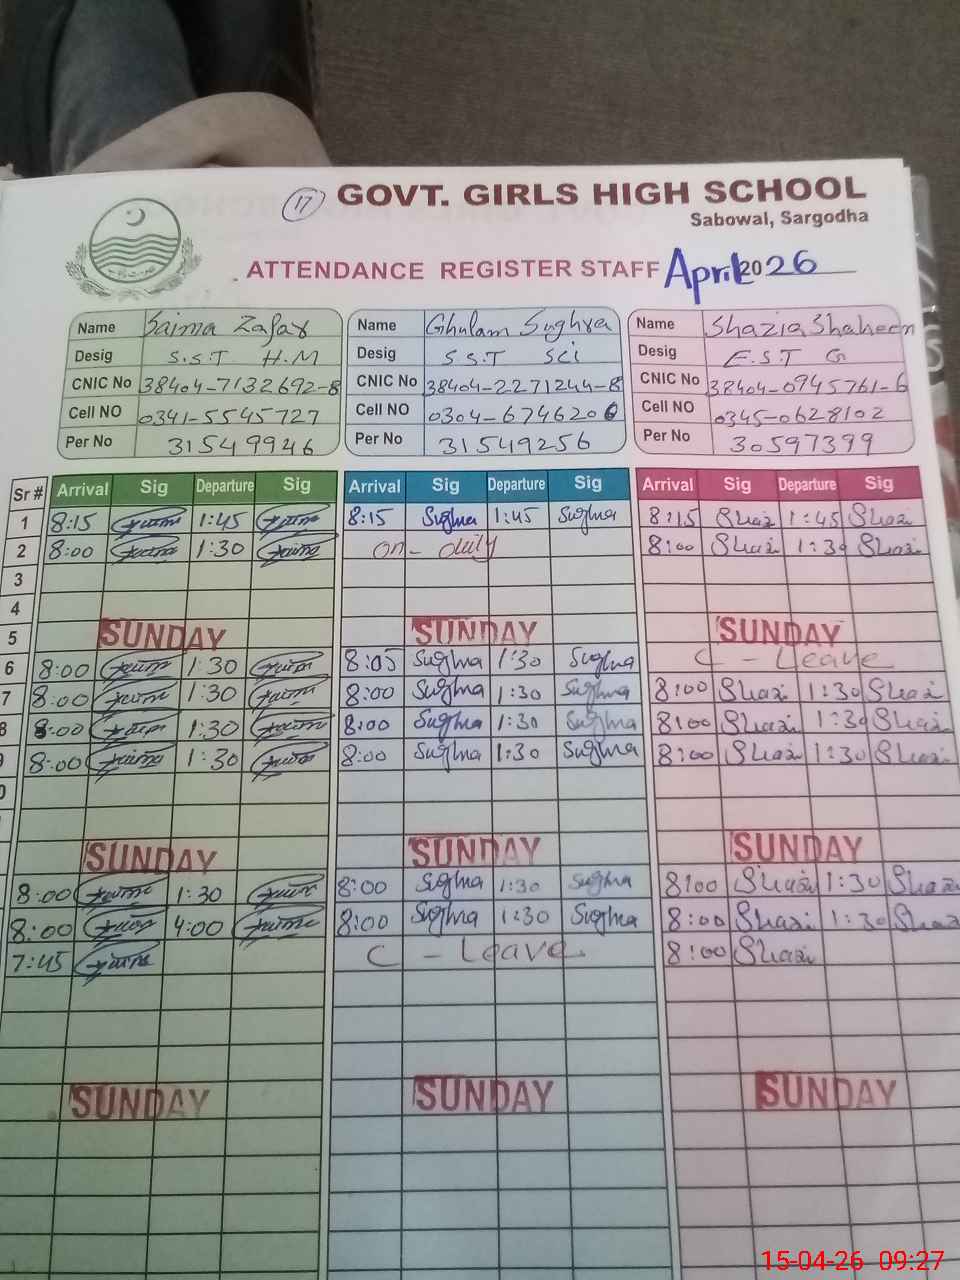 17 GOVT. GIRLS HIGH SCHOOL
Sabowal, Sargodha
ATTENDANCE REGISTER STAFF April 2026
Name Saima Zafar Name Ghulam Sughra Name Shazia Shaheen
Desig S.S.T H.M Desig S.S.T Sci Desig E.S.T G
CNIC No 38404-7132692-8 CNIC No 38404-2271244-8 CNIC No 38404-0945761-6
Cell NO 0341-5545727 Cell NO 0304-6746206 Cell NO 0345-0628102
Per No 31549946 Per No 31549256 Per No 30597399
Sr # Arrival Sig Departure Sig Arrival Sig Departure Sig Arrival Sig Departure Sig
1 8:15 1:45 8:15 Sughra 1:45 Sughra 8:15 Shazi 1:45 Shazi
2 8:00 1:30 on - duty 8:00 Shazi 1:30 Shazi
3
4
5 SUNDAY SUNDAY SUNDAY
6 8:00 1:30 8:05 Sughra 1:30 Sughra C - Leave
7 8:00 1:30 8:00 Sughra 1:30 Sughra 8:00 Shazi 1:30 Shazi
8 8:00 1:30 8:00 Sughra 1:30 Sughra 8:00 Shazi 1:30 Shazi
9 8:00 1:30 8:00 Sughra 1:30 Sughra 8:00 Shazi 1:30 Shazi
0
SUNDAY SUNDAY SUNDAY
8:00 1:30 8:00 Sughra 1:30 Sughra 8:00 Shazi 1:30 Shazi
8:00 4:00 8:00 Sughra 1:30 Sughra 8:00 Shazi 1:30 Shazi
7:45 C - Leave 8:00 Shazi
SUNDAY SUNDAY SUNDAY
15-04-26 09:27